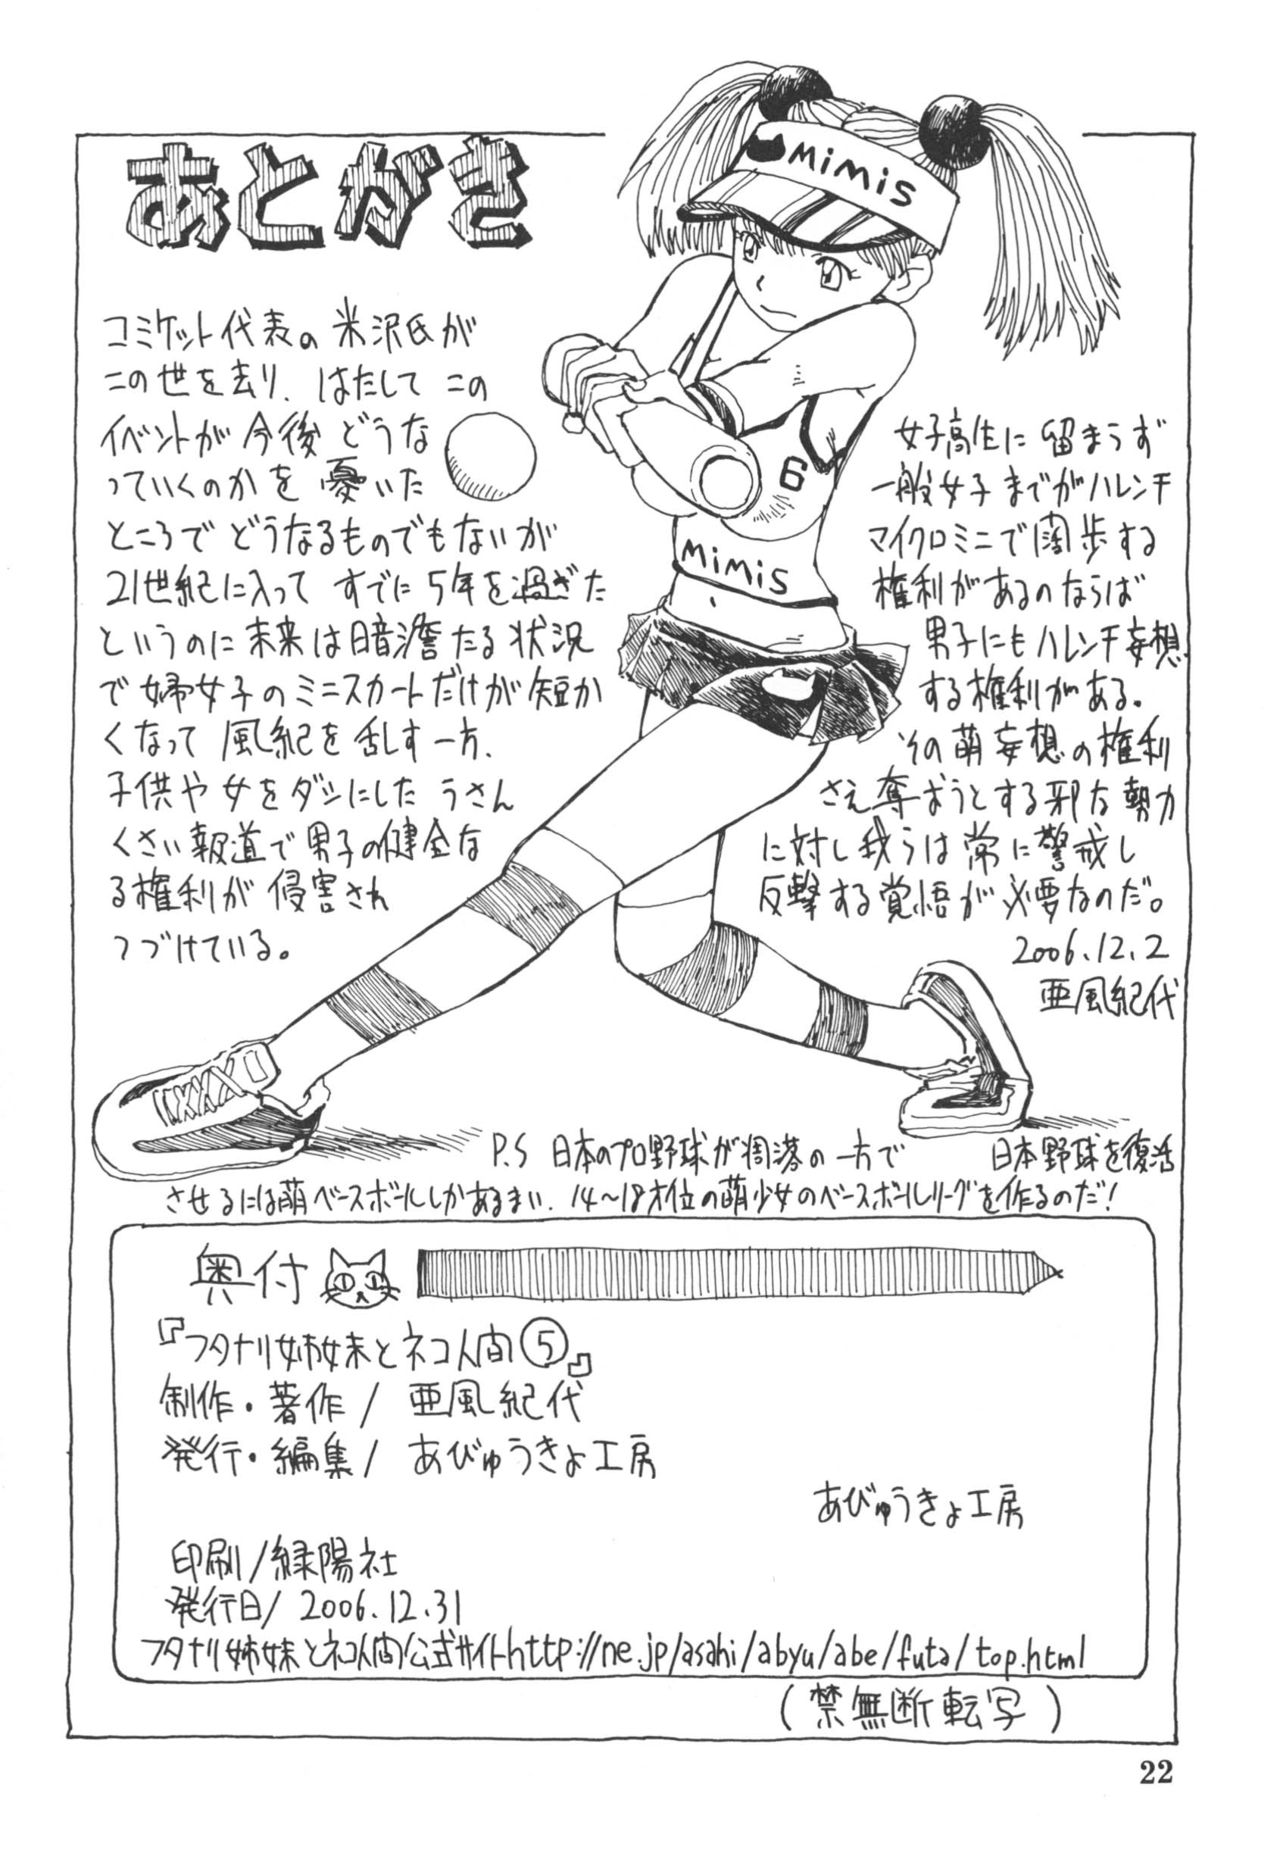 あとがき
MiMiS
コミケット代表の米沢氏が
この世を去り、はたしてこの
イベントが今後どうな
っていくのかを憂いた
ところでどうなるものでもないが
21世紀に入ってすでに5年を過ぎた
というのに未来は暗澹たる状況
で婦女子のミニスカートだけが短か
くなって風紀を乱す一方、
子供や女をダシにしたうさん
くさい報道で男子の健全な
る権利が侵害され
つづけている。
6
MiMiS
女子高生に留まらず
一般女子までがハレンチ
マイクロミニで闊歩する
権利があるのならば
男子にもハレンチ妄想
する権利がある。
その萌妄想の権利
さえ奪おうとする邪な勢力
に対し我らは常に警戒し
反撃する覚悟が必要なのだ。
2006.12.2
亜風紀代
P.S 日本のプロ野球が凋落の一方で 日本野球を復活
させるには萌ベースボールしかあるまい、14〜18才位の萌少女のベースボールリーグを作るのだ!
奥付
『フタナリ姉妹とネコ人間⑤』
制作・著作/亜風紀代
発行・編集/あびゅうきょ工房
あびゅうきょ工房
印刷/緑陽社
発行日/2006.12.31
フタナリ姉妹とネコ人間公式サイトhttp://ne.jp/asahi/abyu/abe/futa/top.html
(禁無断転写)
22